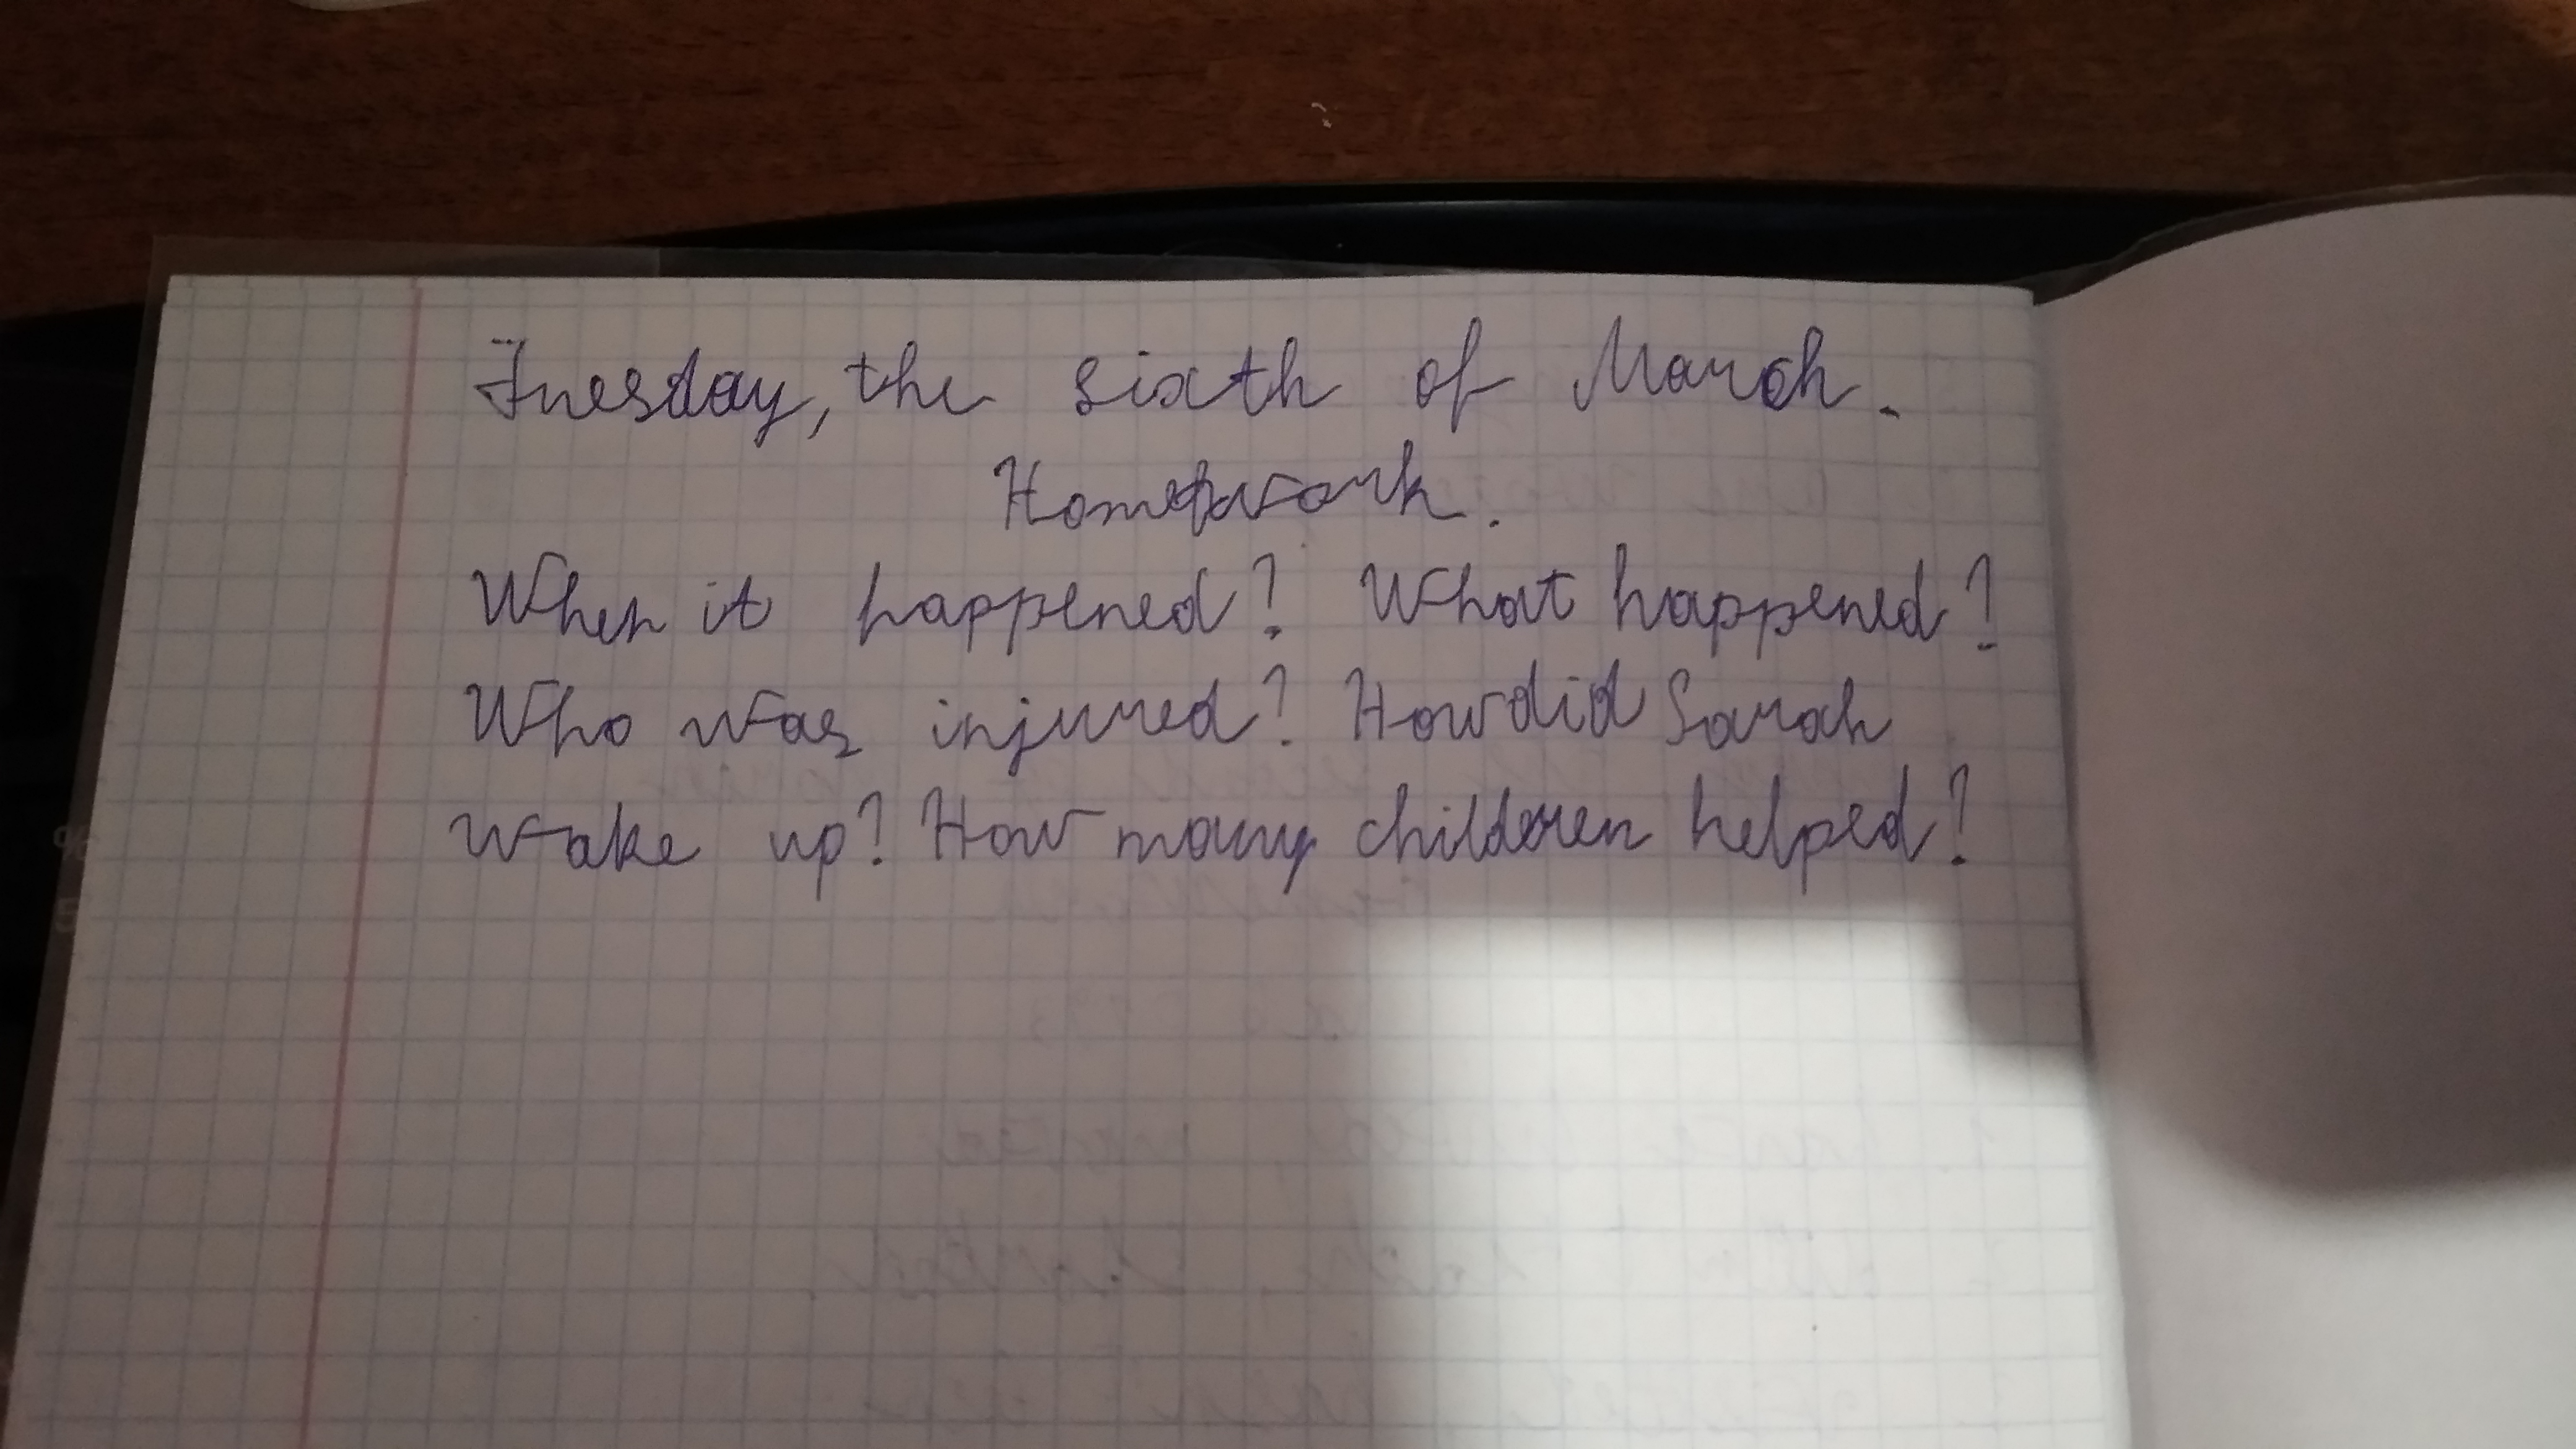 Tuesday, the sixth of March.
Homework.
When it happened? What happened?
Who was injured? How did Sarah
wake up? How many children helped?